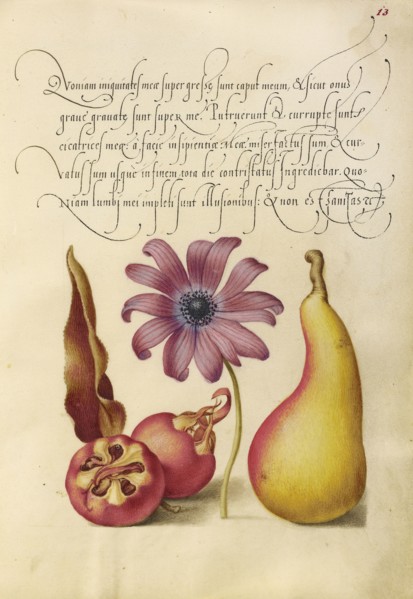 13
Quoniam iniquitates meæ supergressę sunt caput meum, & sicut onus
graue grauatę sunt super me. Putruerunt & corruptę sunt
cicatrices meę, à facie insipientię meæ. miser factus sum & cur-
vatus sum usque in finem, tota die contristatus ingrediebar. Quo-
niam lumbi mei impleti sunt illusionibus: & non est sanitas